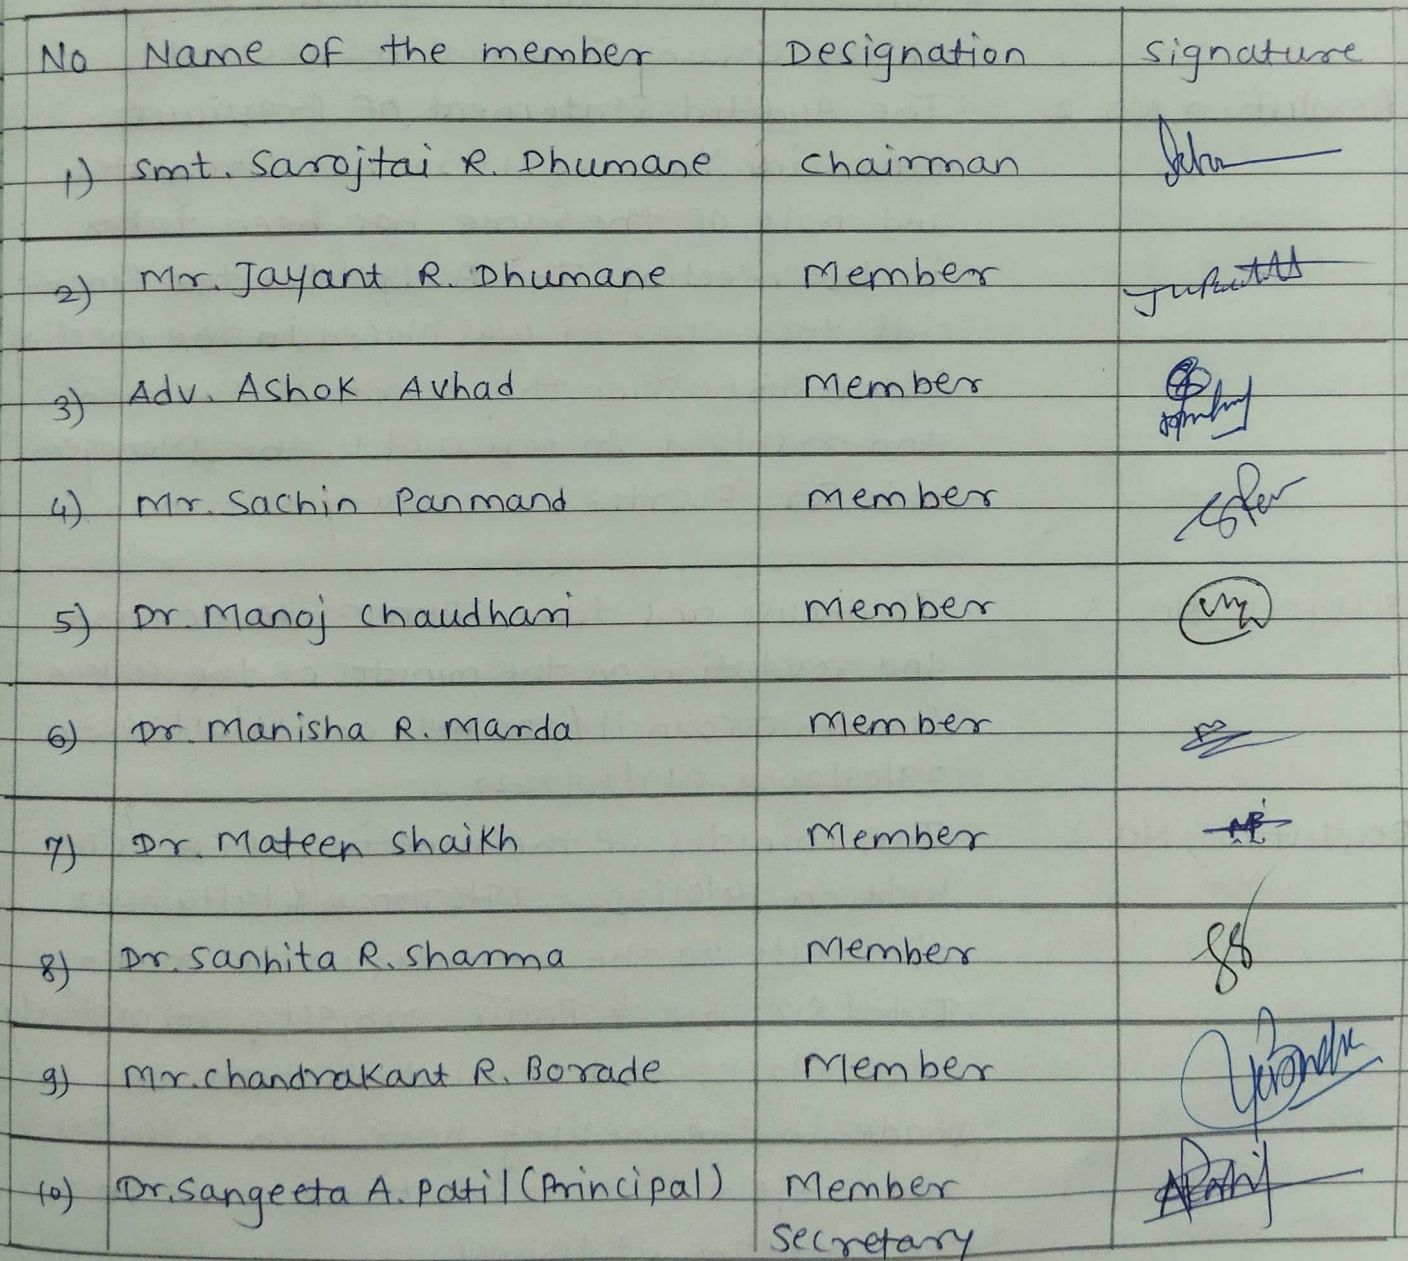 No Name of the member Designation Signature
1) Smt. Sarojtai R. Dhumane Chairman
2) Mr. Jayant R. Dhumane Member
3) Adv. Ashok Avhad Member
4) Mr. Sachin Panmand Member
5) Dr. Manoj Chaudhari Member
6) Dr. Manisha R. Marda Member
7) Dr. Mateen Shaikh Member
8) Dr. Sanhita R. Sharma Member
9) Mr. Chandrakant R. Borade Member
10) Dr. Sangeeta A. Patil (Principal) Member
Secretary